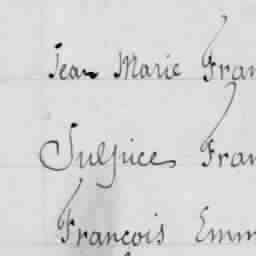 Jean Marie Fran
Sulpices Fran
François Emm